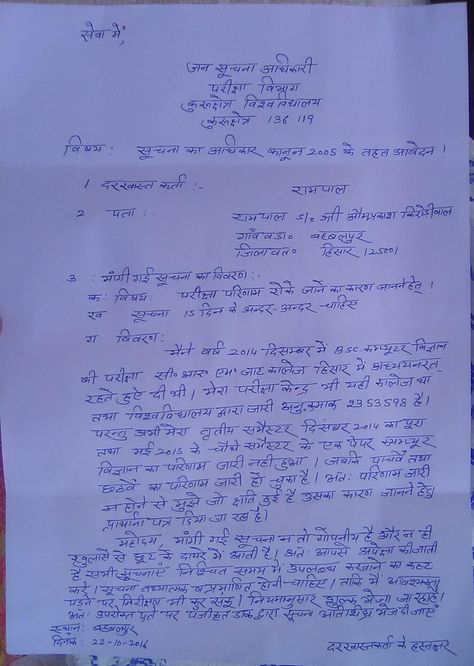 सेवा में,
जन सूचना अधिकारी
परीक्षा विभाग
कुरुक्षेत्र विश्वविद्यालय
कुरुक्षेत्र 136 119
विषय: सूचना का अधिकार कानून 2005 के तहत आवेदन।
1 दरखास्त कर्ता :- रामपाल
2 पता :- रामपाल S/o श्री औमप्रकाश किरोडीवाल
गांव व डा० बहबलपुर
जिला व त० हिसार 125001
3 मांगी गई सूचना का विवरण:-
क: विषय: परीक्षा परिणाम रोके जाने का कारण जानने हेतु।
ख सूचना 15 दिन के अन्दर-अन्दर चाहिए
ग: विवरण:
मैंने वर्ष 2014 दिसम्बर में BSC. कम्प्यूटर विज्ञान
की परीक्षा सी० आर० एम० जाट कालेज हिसार में अध्ययनरत
रहते हुए दी थी। मेरा परीक्षा केन्द्र भी यही कालेज था
तथा विश्वविद्यालय द्वारा जारी अनु.क्रमांक 2353598 है।
परन्तु अभी मेरा तृतीय समैस्टर दिसंबर 2014 का पूरा
तथा मई 2015 के चौथे समैस्टर के एक पेपर कम्प्यूटर
विज्ञान का परिणाम जारी नहीं हुआ। जबकि पांचवें तथा
छठवें का परिणाम जारी हो चुका है। अतः परिणाम जारी
न होने से मुझे जो क्षति हुई है उसका कारण जानने हेतु
प्रार्थना पत्र दिया जा रहा है।
महोदय, मांगी गई सूचना न तो गोपनीय है और न ही
खुलासे से छूट के दायरे में आती है। अतः आपसे अपेक्षा की जाती
है सभी सूचनाएं निश्चित समय में उपलब्ध करवाने का कष्ट
करें। सूचना तथ्यात्मक व प्रमाणित होनी चाहिए। ताकि मैं आवश्यकता
पड़ने पर निरीक्षण भी कर सकूं। नियमानुसार शुल्क भेजा जा रहा है।
अतः उपरोक्त पते पर पंजीकृत डाक द्वारा सूचना अतिशीघ्र भेज दी जाएं
स्थान: बहबलपुर
दिनांक: 22-10-2016 दरखास्तकर्ता के हस्ताक्षर